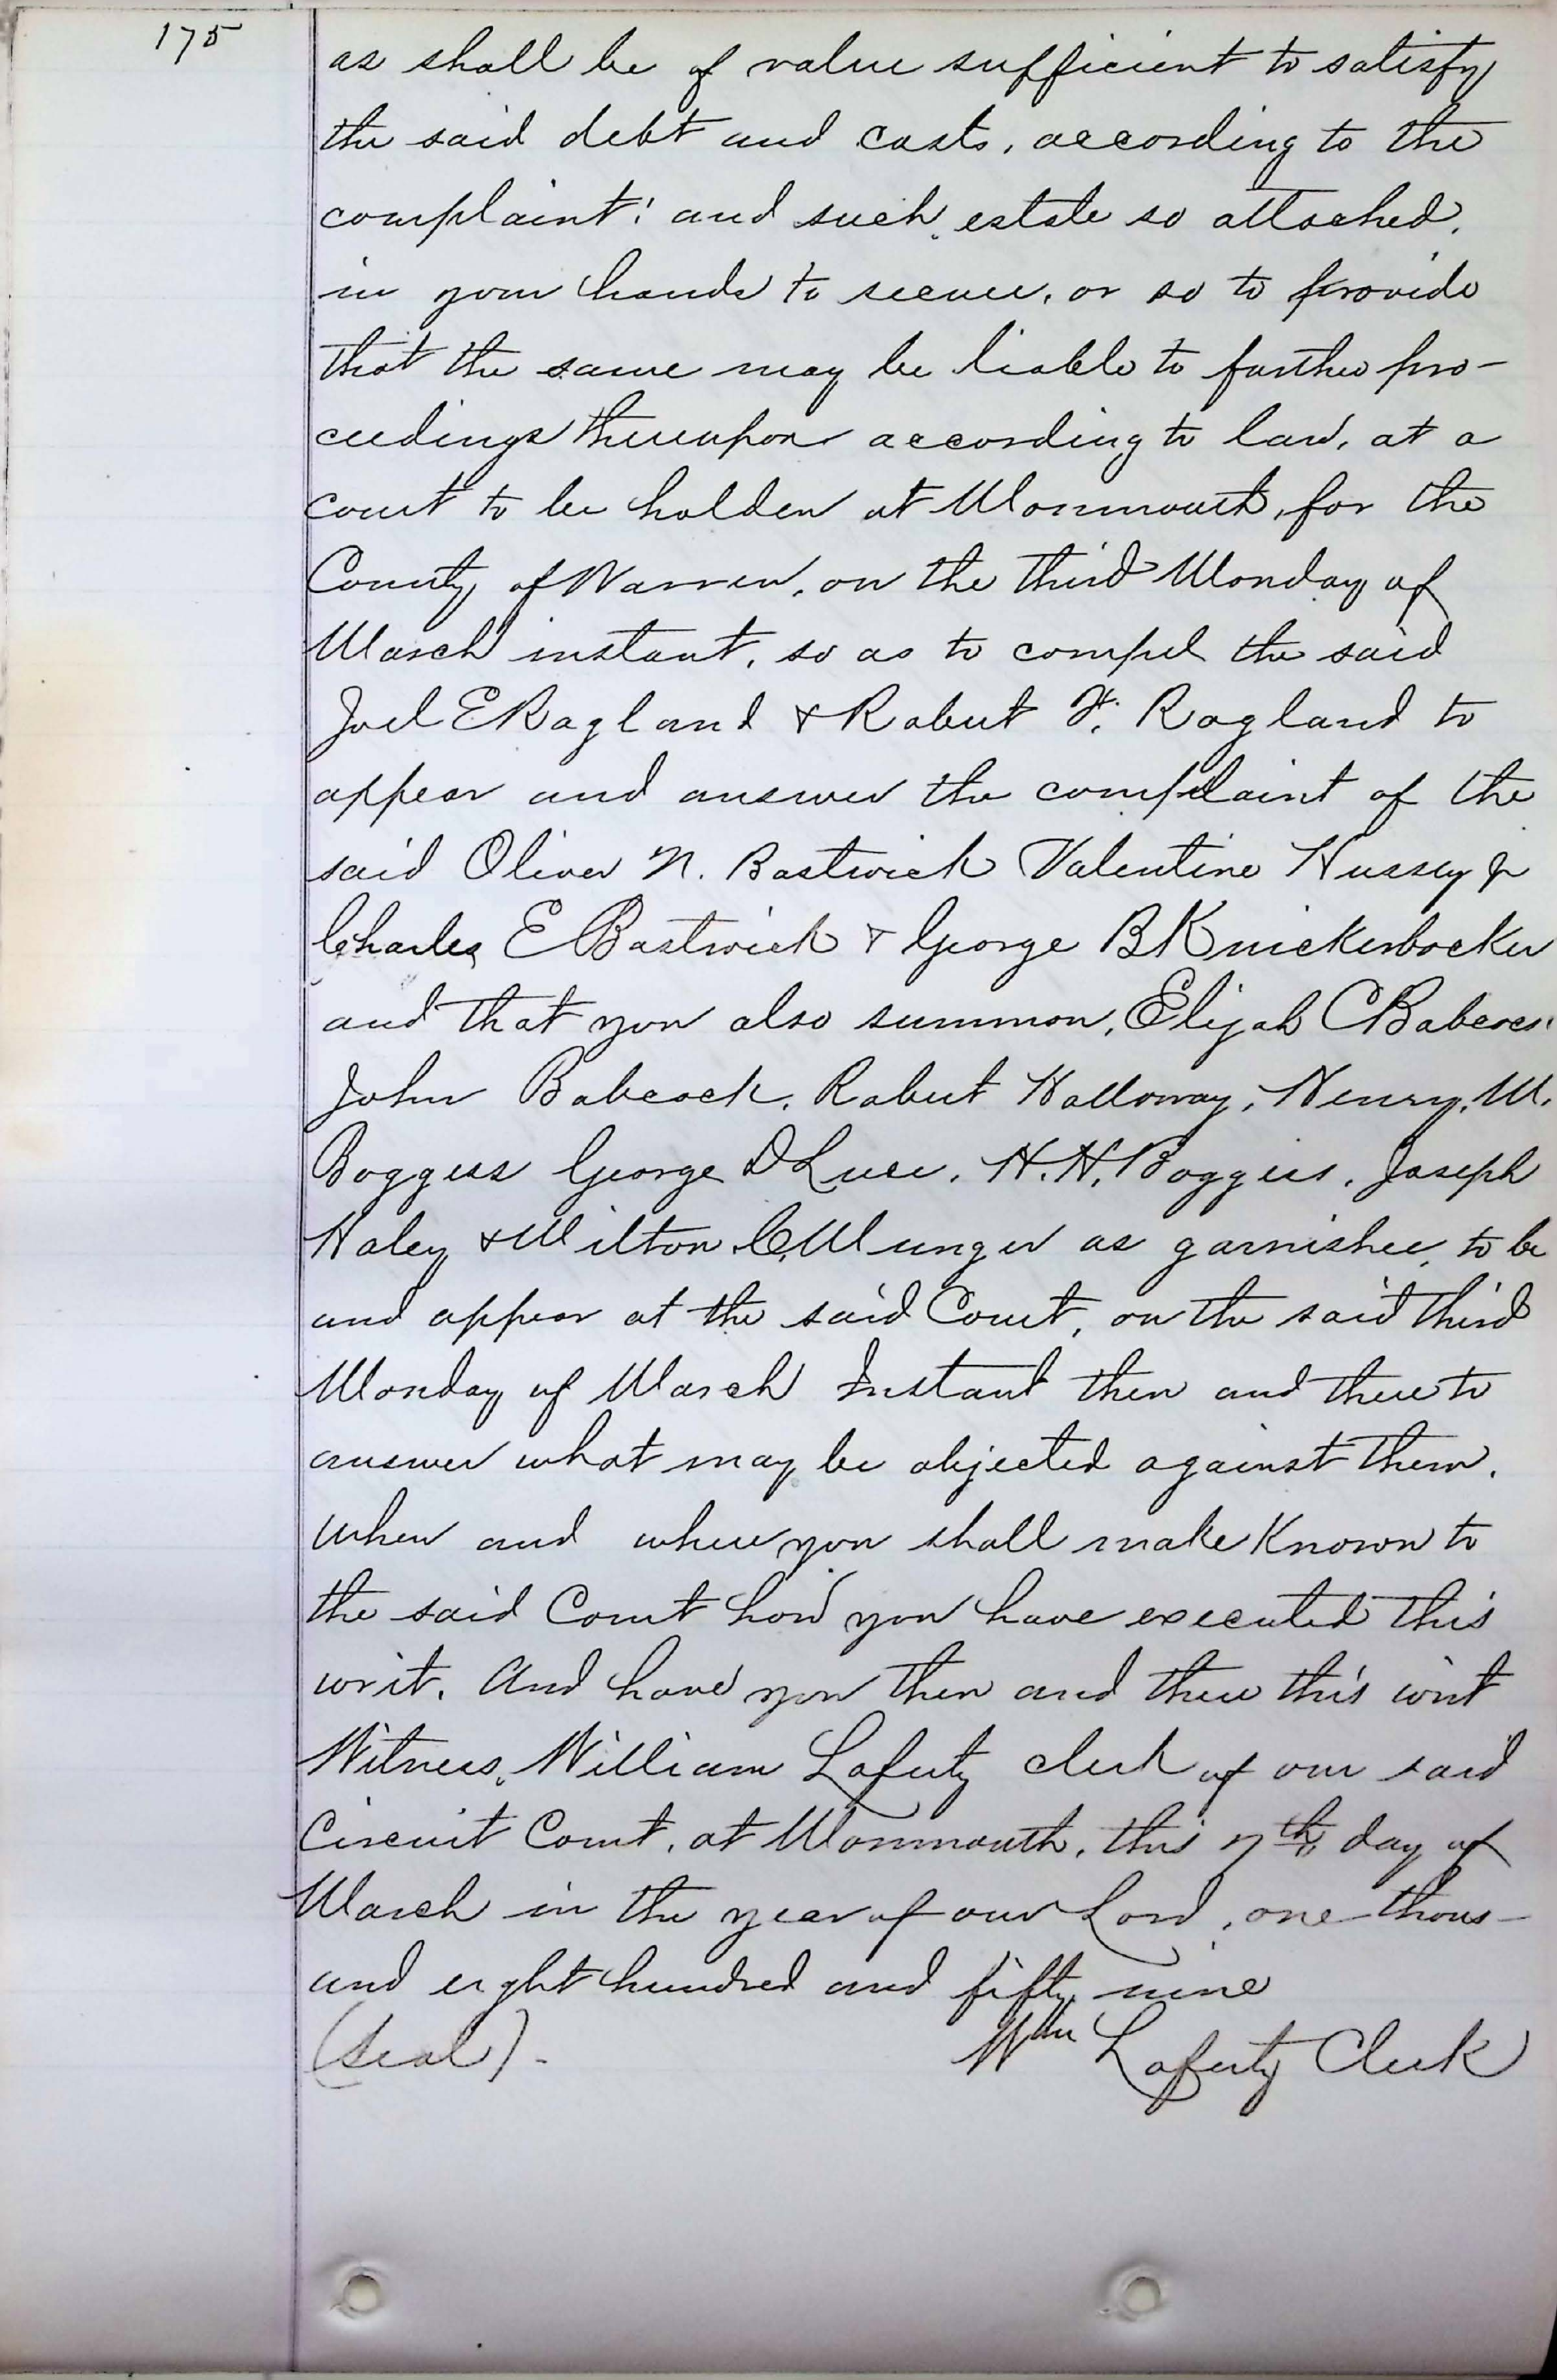 175
as shall be of value sufficient to satisfy
the said debt and costs, according to the
complaint; and such estate so attached,
in your hands to secure, or so to provide
that the same may be liable to further pro-
ceedings thereupon according to law, at a
court to be holden at Monmouth, for the
County of Warren, on the third Monday of
March instant, so as to compel the said
Joel E Ragland & Robert F. Ragland to
appear and answer the complaint of the
said Oliver N. Bostwick Valentine Hussey Jr
Charles E Bostwick & George B Knickerbocker
and that you also summon, Elijah C Babcock
John Babcock, Robert Holloway, Henry, M.
Boggess George D Luce, H. H. Boggess, Joseph
Haley & Milton C. Munger as garnishee, to be
and appear at the said Court, on the said third
Monday of March Instant then and there to
answer what may be objected against them,
when and where you shall make known to
the said Court how you have executed this
writ. And have you then and there this writ
Witness, William Laferty clerk of our said
Circuit Court, at Monmouth, this 7th day of
March in the year of our Lord, one thous-
and eight hundred and fifty nine
(Seal).
Wm Laferty Clerk